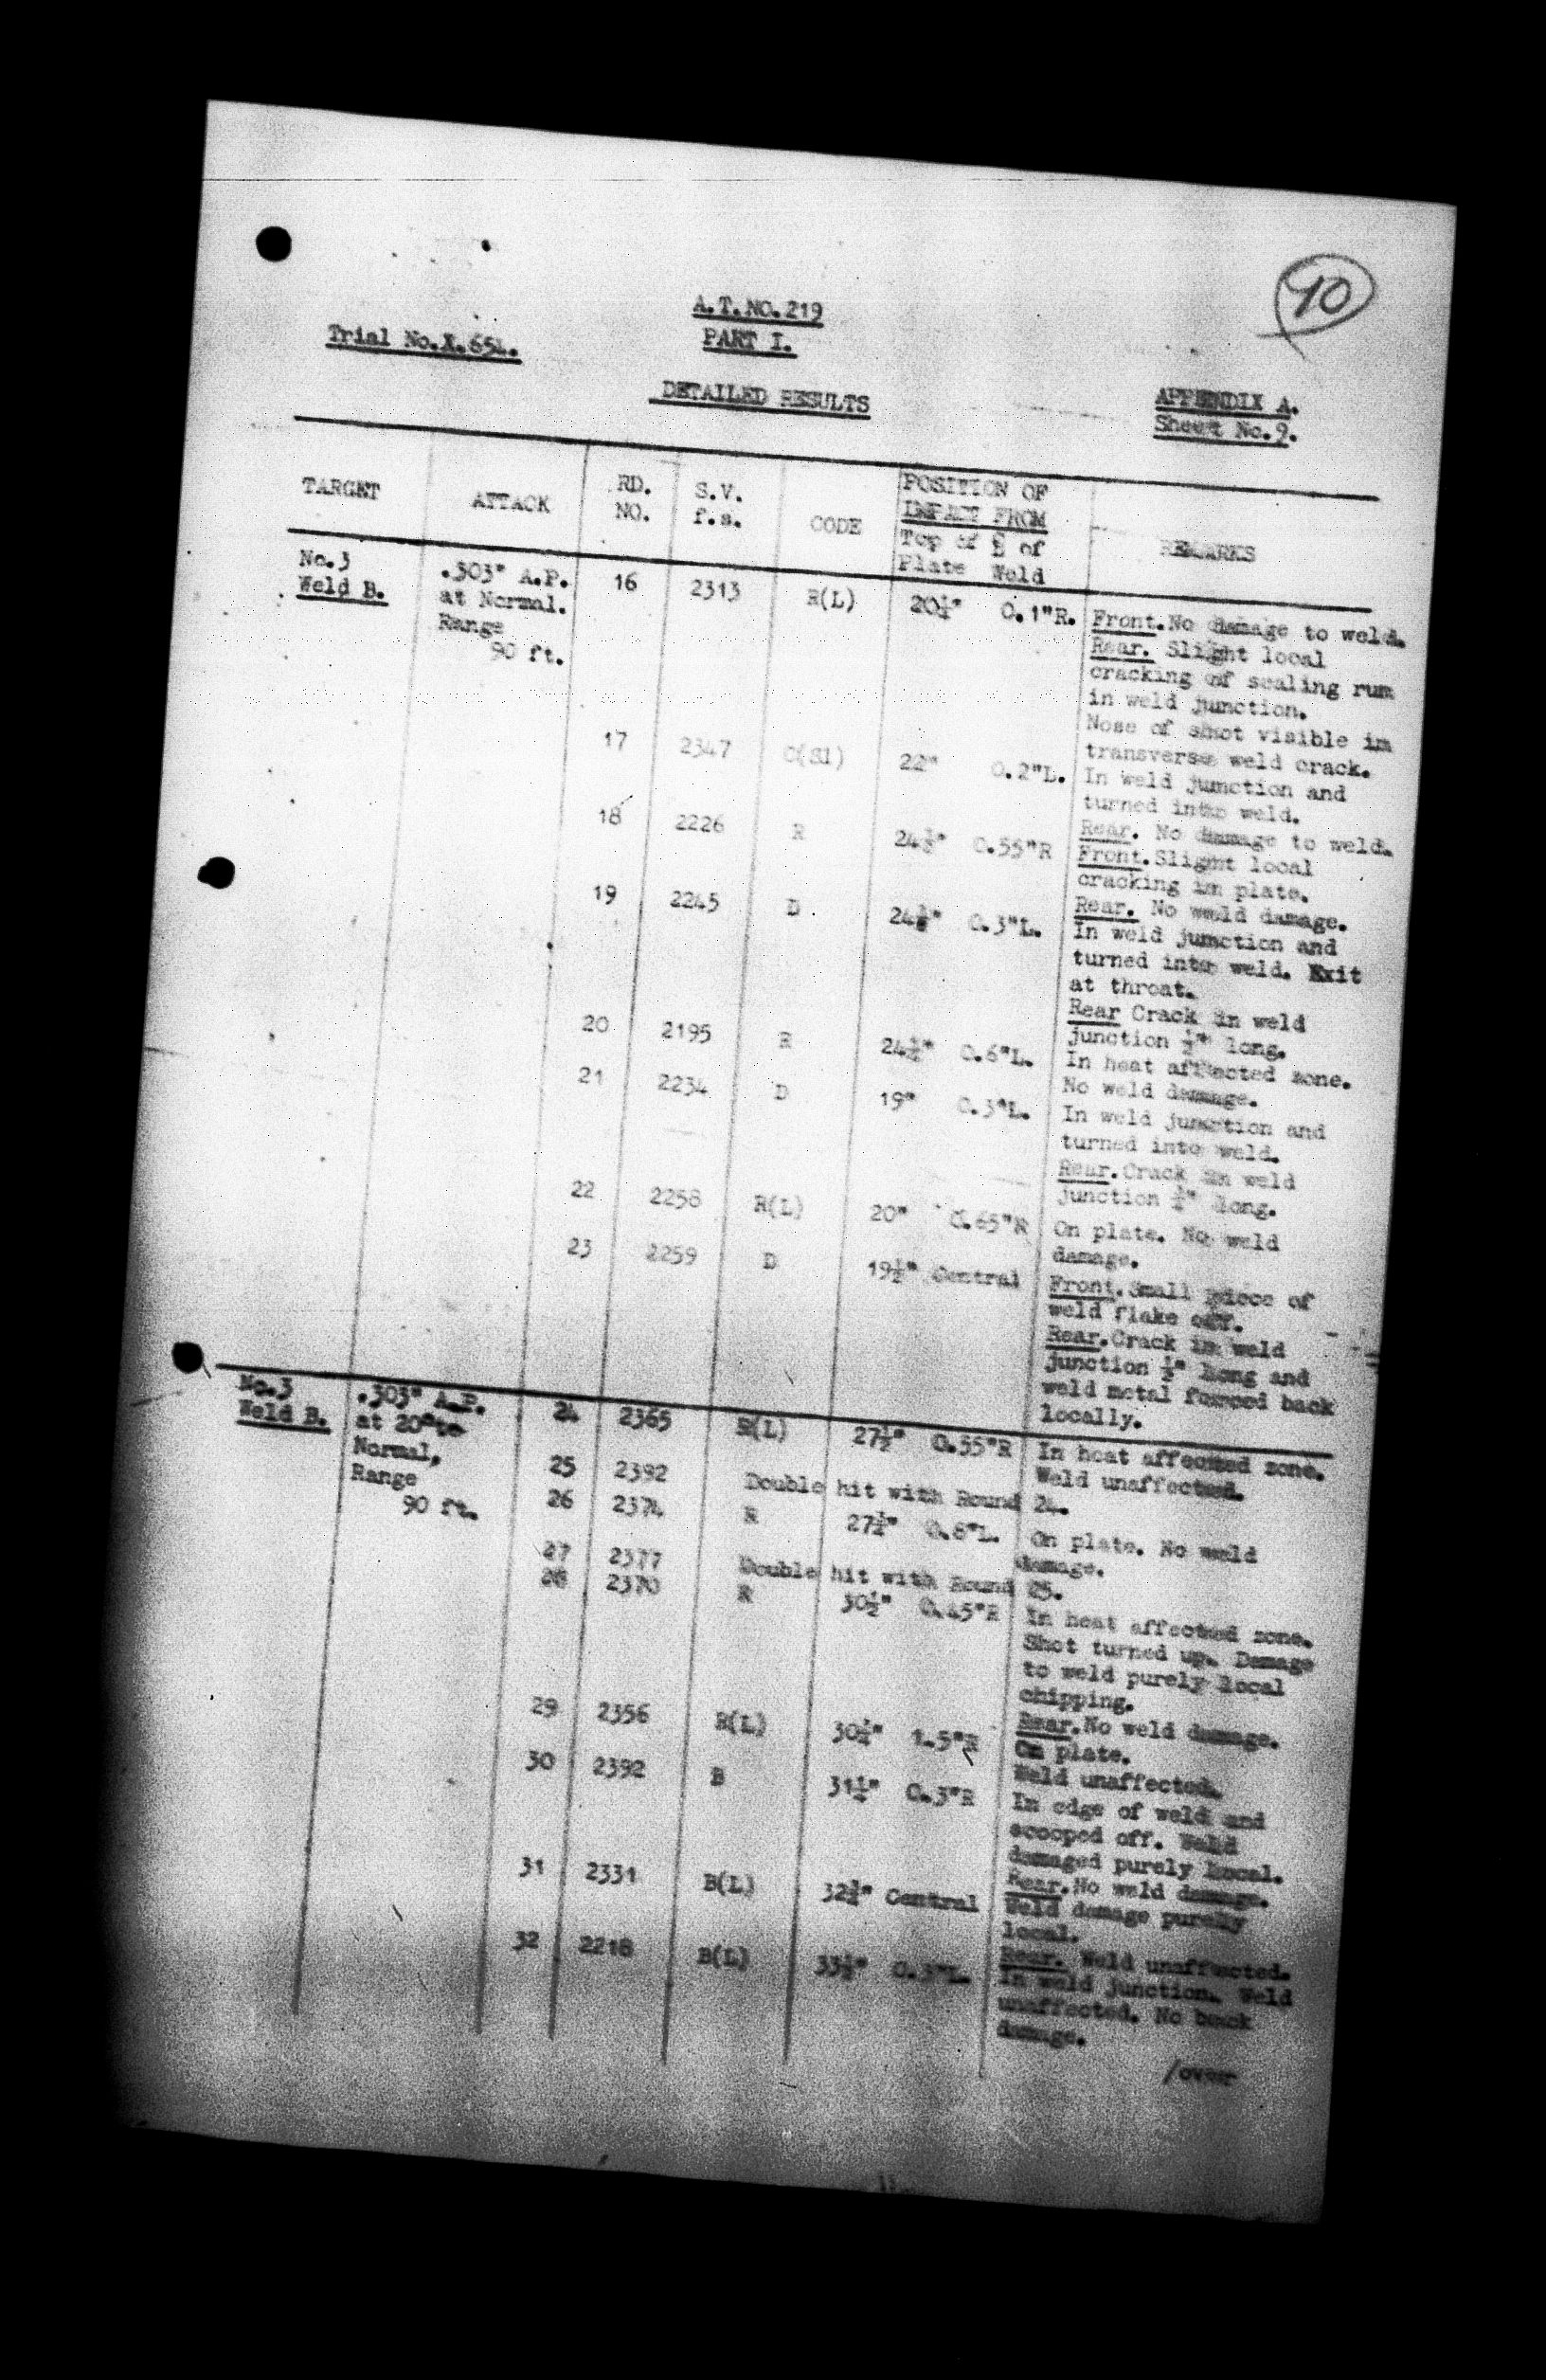 10
A.T.NO.219
Trial No.X.654.
PART I.
DETAILED RESULTS
APPENDIX A.
Sheet No.9.
TARGET ATTACK RD. NO. S.V. f.s. CODE POSITION OF IMPACT FROM Top of Plate ₵ of Weld REMARKS
No.3 .303" A.P. 16 2313 R(L) 20¼" 0.1"R. Front.No damage to weld.
Weld B. at Normal. Rear. Slight local
Range cracking of sealing run
90 ft. in weld junction.
Nose of shot visible in
transverse weld crack.
17 2347 C(Sl) 22" 0.2"L. In weld junction and
turned into weld.
Rear. No damage to weld.
18 2226 R 0.55"R Front.Slight local
cracking in plate.
Rear. No weld damage.
19 2245 D 0.3"L. In weld junction and
turned into weld. Exit
at throat.
Rear Crack in weld
junction ½" long.
20 2195 R 0.6"L. In heat affected zone.
No weld damage.
21 2234 D 19" 0.3"L. In weld junction and
turned into weld.
Rear.Crack in weld
junction long.
22 2258 R(L) 20" 0.65"R On plate. No weld
damage.
23 2259 D 19½" Central Front.Small piece of
weld flake off.
Rear.Crack in weld
junction long and
weld metal forced back
locally.
No.3 .303" A.P. 24 2365 R(L) 27½" 0.55"R In heat affected zone.
Weld B. at 20° to Weld unaffected.
Normal, 25 2392 Double hit with Round 24.
Range 26 2374 R 0.8"L. On plate. No weld
90 ft. damage.
27 2377 Double hit with Round 25.
28 2370 R 30½" 0.45"R In heat affected zone.
Shot turned up. Damage
to weld purely local
chipping.
Rear.No weld damage.
29 2356 R(L) 1.5"R On plate.
Weld unaffected.
30 2392 B 0.3"R In edge of weld and
scooped off. Weld
damaged purely local.
Rear.No weld damage.
31 2331 B(L) Central Weld damage purely
local.
Rear. Weld unaffected.
32 2218 B(L) 0.3"L. In weld junction. Weld
unaffected. No back
damage.
/over